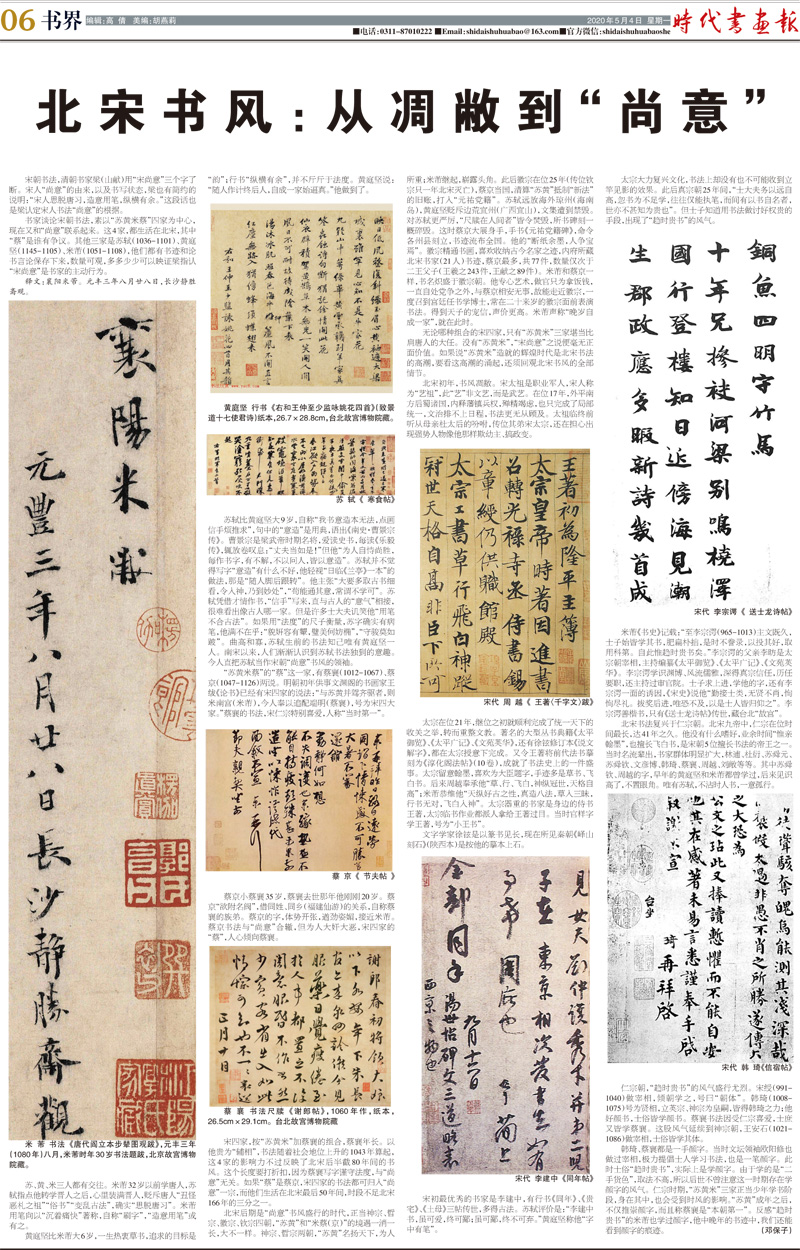 06 书界 编辑:高 倩 美编:胡燕莉
2020年5月4日 星期一
时代书画报
■电话:0311-87010222 ■Email:shidaishuhuabao@163.com■官方微信:shidaishuhuabaoshe
北宋书风:从凋敝到“尚意”
宋朝书法,清朝书家梁(山献)用“宋尚意”三个字了
断。宋人“尚意”的由来,以及书写状态,梁也有简约的
说明:“宋人思脱唐习,造意用笔,纵横有余。”这段话也
是梁认定宋人书法“尚意”的根据。
书家谈论宋朝书法,素以“苏黄米蔡”四家为中心,
现在又和“尚意”联系起来。这4家,都生活在北宋,其中
“蔡”是谁有争议。其他三家是苏轼(1036-1101)、黄庭
坚(1145-1105)、米芾(1051-1108),他们都有书迹和论
书言论保存下来,数量可观,多多少少可以映证梁指认
“宋尚意”是书家的主动行为。
释文:襄阳米芾。元丰三年八月廿八日,长沙静胜
斋观。
襄陽米黻
元豐三年八月廿八日長沙靜勝齋觀
米 芾 书法《唐代阎立本步辇图观跋》,元丰三年
(1080年)八月,米芾时年30岁书法题跋,北京故宫博物
院藏。
苏、黄、米三人都有交往。米芾32岁以前学唐人,苏
轼指点他转学晋人之后,心里装满晋人,贬斥唐人“丑怪
恶札之祖”“俗书”“变乱古法”,确实“思脱唐习”。米芾
用笔尚以“沉着痛快”著称,自称“刷字”,“造意用笔”或
有之。
黄庭坚比米芾大6岁,一生热衷草书,追求的目标是
“韵”;行书“纵横有余”,并不斤斤于法度。黄庭坚说:
“随人作计终后人,自成一家始逼真。”他做到了。
黄庭坚 行书《右和王仲至少监咏姚花四首》(致景
道十七使君诗)纸本,26.7×28.8cm,台北故宫博物院藏。
苏 轼《 寒食帖》
苏轼比黄庭坚大9岁,自称“我书意造本无法,点画
信手烦推求”,句中的“意造”是用典,语出《南史·曹景宗
传》。曹景宗是梁武帝时期名将,爱读史书,每读《乐毅
传》,辄放卷叹息:“丈夫当如是!”但他“为人自恃尚胜,
每作书字,有不解,不以问人,皆以意造”。苏轼并不觉
得写字“意造”有什么不好,他轻视“日临《兰亭》一本”的
做法,那是“随人脚后跟转”。他主张“大要多取古书细
看,令人神,乃到妙处”,“苟能通其意,常谓不学可”。苏
轼凭借才情作书,“信手”写来,直与古人的“意气”相接,
很难看出像古人哪一家。但是许多士大夫讥笑他“用笔
不合古法”。如果用“法度”的尺子衡量,苏字确实有病
笔,他满不在乎:“貌妍容有颦,璧美何妨椭”,“守骏莫如
跛”。曲高和寡,苏轼生前的书法知己唯有黄庭坚一
人。南宋以来,人们渐渐认识到苏轼书法独到的意趣。
今人直把苏轼当作宋朝“尚意”书风的领袖。
“苏黄米蔡”的“蔡”这一家,有蔡襄(1012-1067)、蔡
京(1047-1126)两说。明朝初年供事文渊阁的书画家王
绂《论书》已经有宋四家的说法:“与苏黄并驾齐驱者,则
米南宫(米芾),今人辈以追配端明(蔡襄),号为宋四大
家。”蔡襄的书法,宋仁宗特别喜爱,人称“当时第一”。
蔡 京《 节夫帖 》
蔡京小蔡襄35岁,蔡襄去世那年他刚刚20岁。蔡
京“欲附名阀”,借同姓、同乡(福建仙游)的关系,自称蔡
襄的族弟。蔡京的字,体势开张,遒劲姿媚,接近米芾。
蔡京书法与“尚意”合辙,但为人大奸大恶,宋四家的
“蔡”,人心倾向蔡襄。
蔡 襄 书法尺牍《谢郎帖》,1060年作,纸本,
26.5cm×29.1cm。台北故宫博物院藏
宋四家,按“苏黄米”加蔡襄的组合,蔡襄年长。以
他贵为“辅相”,书法随着社会地位上升的1043年算起,
这4家的影响力不过反映了北宋后半截80年间的书
风。这个长度要打折扣,因为蔡襄写字谨守法度,与“尚
意”无关。如果“蔡”是蔡京,宋四家的书法都可归入“尚
意”一宗,而他们生活在北宋最后50年间,时段不足北宋
166年的三分之一。
北宋后期是“尚意”书风盛行的时代,正当神宗、哲
宗、徽宗、钦宗四朝。“苏黄”和“米蔡(京)”的境遇一消一
长,大不一样。神宗、哲宗两朝,“苏黄”名扬天下,为人
所重;米芾继起,崭露头角。此后徽宗在位25年(传位钦
宗只一年北宋灭亡),蔡京当国,清算“苏黄”抵制“新法”
的旧账,打入“元祐党籍”。苏轼远放海外琼州(海南
岛),黄庭坚贬斥边荒宜州(广西宜山),文集遭到禁毁。
对苏轼更严厉,“尺牍在人间者”皆令焚毁,所书碑刻一
概砸毁。这时蔡京大展身手,手书《元祐党籍碑》,命令
各州县刻立,书迹流布全国。他的“断纸余墨,人争宝
焉”。徽宗精通书画,喜欢收纳古今名家之迹,内府所藏
北宋书家(21人)书迹,蔡京最多,共77件,数量仅次于
二王父子(王羲之243件,王献之89件)。米芾和蔡京一
样,书名炽盛于徽宗朝。他专心艺术,做官只为拿饭钱,
一直自处党争之外,与蔡京相安无事,故能走近徽宗,一
度召到宣廷任书学博士,常在二十来岁的徽宗面前表演
书法。得到天子的宠信,声价更高。米芾声称“晚岁自
成一家”,就在此时。
无论哪种组合的宋四家,只有“苏黄米”三家堪当比
肩唐人的大任。没有“苏黄米”,“宋尚意”之说便毫无正
面价值。如果说“苏黄米”造就的辉煌时代是北宋书法
的高潮,要看这高潮的涌起,还须回观北宋书风的全部
情节。
北宋初年,书风凋敝。宋太祖是职业军人,宋人称
为“艺祖”,此“艺”非文艺,而是武艺。在位17年,外平南
方后蜀诸国,内释藩镇兵权,殚精竭虑,也只完成了局部
统一,文治推不上日程,书法更无从顾及。太祖临终前
听从母亲杜太后的吩咐,传位其弟宋太宗,还在担心出
现强势人物像他那样欺幼主,搞政变。
宋代 周 越《 王著(千字文)跋》
太宗在位21年,继位之初就顺利完成了统一天下的
收关之举,转而重整文教。著名的大型丛书典籍《太平
御览》、《太平广记》、《文苑英华》,还有徐铉修订本《说文
解字》,都在太宗授意下完成。又令王著将前代法书摹
刻为《淳化阁法帖》(10卷),成就了书法史上的一件盛
事。太宗留意翰墨,喜欢为大臣题字,手迹多是草书、飞
白书。后来周越奉承他“草、行、飞白,神纵冠世,天格自
高”;米芾恭维他“天纵好古之性,真造八法,草入三昧,
行书无对,飞白入神”。太宗器重的书家是身边的侍书
王著,太宗临书作业都派人拿给王著过目。当时官样字
学王著,号为“小王书”。
文字学家徐铉是以篆书见长,现在所见秦朝《峄山
刻石》(陕西本)是按他的摹本上石。
宋代 李建中《同年帖》
宋初最优秀的书家是李建中,有行书《同年》、《贵
宅》、《土母》三帖传世,多得古法。苏轼评价是:“李建中
书,虽可爱,终可鄙;虽可鄙,终不可弃。”黄庭坚称他“字
中有笔”。
太宗大力复兴文化,书法上却没有也不可能收到立
竿见影的效果。此后真宗朝25年间,“士大夫务以远自
高,忽书为不足学,往往仅能执笔,而间有以书自名者,
世亦不甚知为贵也”。但士子知道用书法做讨好权贵的
手段,出现了“趋时贵书”的风气。
宋代 李宗谔《 送士龙诗帖》
米芾《书史》记载:“至李宗谔(965-1013)主文既久,
士子始皆学其书,肥扁朴拙,是时不誊录,以投其好,取
用科第。自此惟趋时贵书矣。”李宗谔的父亲李昉是太
宗朝宰相,主持编纂《太平御览》、《太平广记》、《文苑英
华》。李宗谔学识渊博,风流儒雅,深得真宗信任,历任
要职,还主持过审官院。士子求上进,学他的字,还有李
宗谔一面的诱因,《宋史》说他“勤接士类,无贤不肖,恂
恂尽礼。拔奖后进,唯恐不及,以是士人皆归仰之”。李
宗谔善楷书,只有《送士龙诗帖》传世,藏台北“故宫”。
北宋书法复兴于仁宗朝。北宋九帝中,仁宗在位时
间最长,达41年之久。他没有什么嗜好,业余时间“惟亲
翰墨”,也擅长飞白书,是宋朝5位擅长书法的帝王之一。
当时名流辈出,书家群体明显扩大,林逋、杜衍、苏舜元、
苏舜钦、文彦博、韩琦、蔡襄、周越、刘敞等等。其中苏舜
钦、周越的字,早年的黄庭坚和米芾都曾学过,后来见识
高了,不置眼角。唯有苏轼,不沾时人书,一意孤行。
宋代 韩 琦《信宿帖》
仁宗朝,“趋时贵书”的风气盛行尤烈。宋绶(991-
1040)做宰相,倾朝学之,号曰“朝体”。韩琦(1008-
1075)号为贤相,立英宗,神宗为皇嗣,皆得韩琦之力;他
好颜书,士俗皆学颜书。蔡襄书法因受仁宗喜爱,士庶
又皆学蔡襄。这股风气延续到神宗朝,王安石(1021-
1086)做宰相,士俗皆学其体。
韩琦、蔡襄都是一手颜字。当时文坛领袖欧阳修也
做过宰相,极力提倡士人学习书法,也是一笔颜字。此
时士俗“趋时贵书”,实际上是学颜字。由于学的是“二
手货色”,取法不高,所以后世不曾注意这一时期存在学
颜字的风气。仁宗时期,“苏黄米”三家正当少年学书阶
段,身在其中,也会受到时风的影响。“苏黄”成年之后,
不仅推崇颜字,而且称蔡襄是“本朝第一”。反感“趋时
贵书”的米芾也学过颜字,他中晚年的书迹中,我们还能
看到颜字的痕迹。
(邓保子)